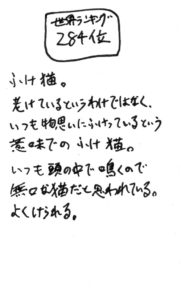 世界ランキング
284位
ふけ猫。
老けているというわけではなく、
いつも物思いにふけっているという
意味でのふけ猫。
いつも頭の中で鳴くので
無口な猫だと思われている。
よくけられる。